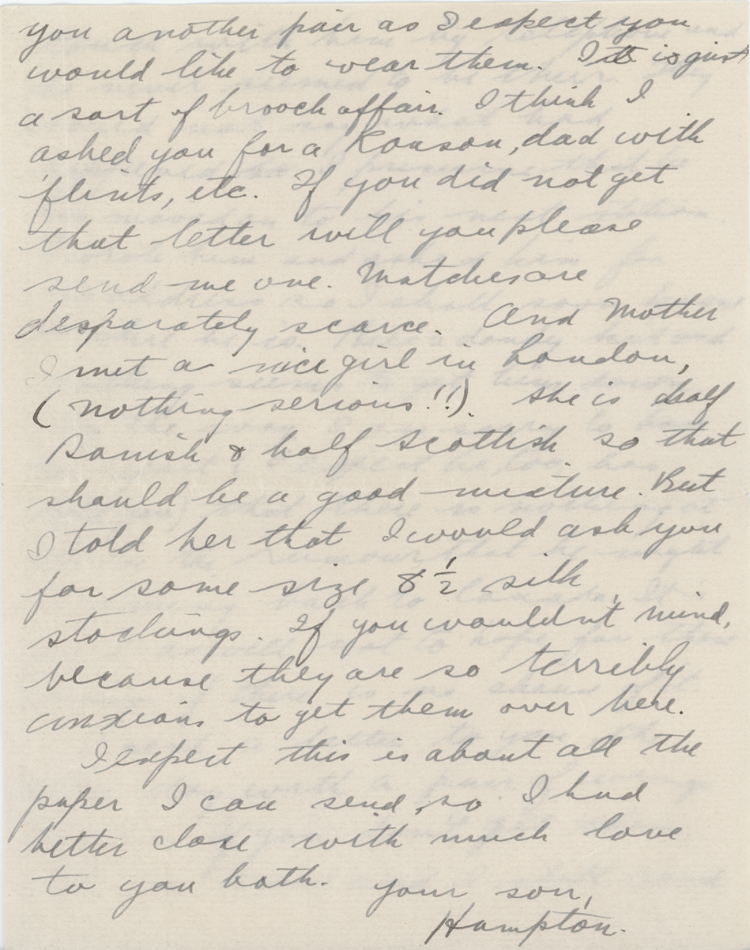 you another pair as I expect you
would like to wear them. It is just
a sort of brooch affair. I think I
asked you for a Ronson, dad with
flints, etc. If you did not get
that letter will you please
send me one. Matches are
desparately scarce. And Mother
I met a nice girl in London,
(nothing serious!!). She is half
Danish & half Scottish so that
should be a good mixture. But
I told her that I would ask you
for some size 8 1/2 silk
stockings. If you wouldn't mind,
because they are so terribly
anxious to get them over here.
I expect this is about all the
paper I can send, so I had
better close with much love
to you both. your son,
Hampton.